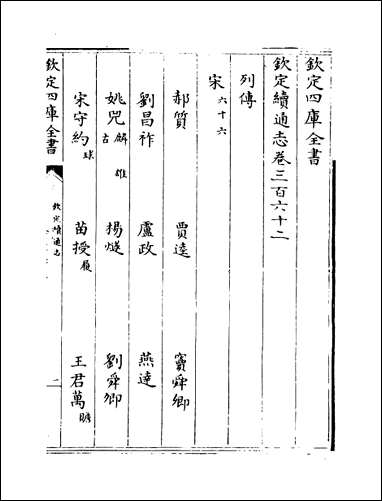 欽定四庫全書
欽定續通志卷三百六十二
列傳
宋六十六
郝質 賈逵 竇舜卿
劉昌祚 盧政 燕達
姚兕麟雄古 楊燧 劉舜卿
宋守約球 苗授履 王君萬贍
欽定四庫全書
欽定續通志
一